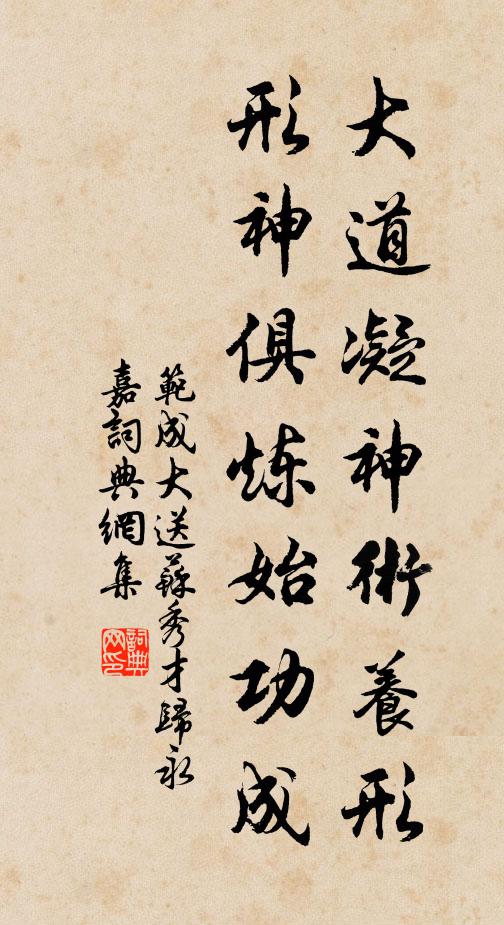 大道凝神術養形
形神俱炼始功成
範成大送蘇秀才歸永
嘉詞典網集
詞典网印